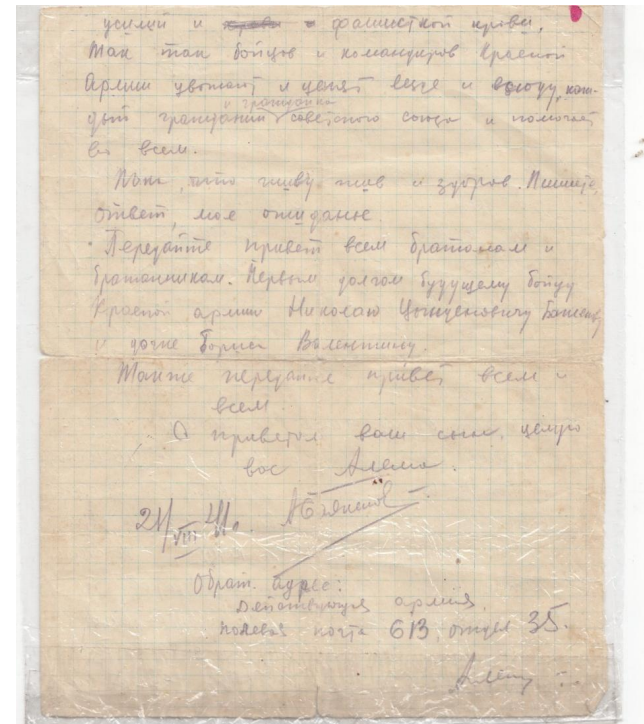 усилий и крови и фашисткой крови.
Так так бойцов и командиров Красной
Армии уважают и ценят везде и всюду, каж-
и гражданка
дый гражданин советского союза и помогает
во всем.
Пока, что живу жив и здоров. Пишите
ответ, мое ожидание.
Передайте привет всем братонам и
братанникам. Первым долгом будущему бойцу
Красной армии Николаю Цынденовичу
и дочке Бориса Валентину.
Также передайте привет всем и
всем.
С приветом ваш сын, целую
вас
21/VIII 41г.
Обрат. адрес:
Действующая армия,
полевая почта 613, отдел 35.